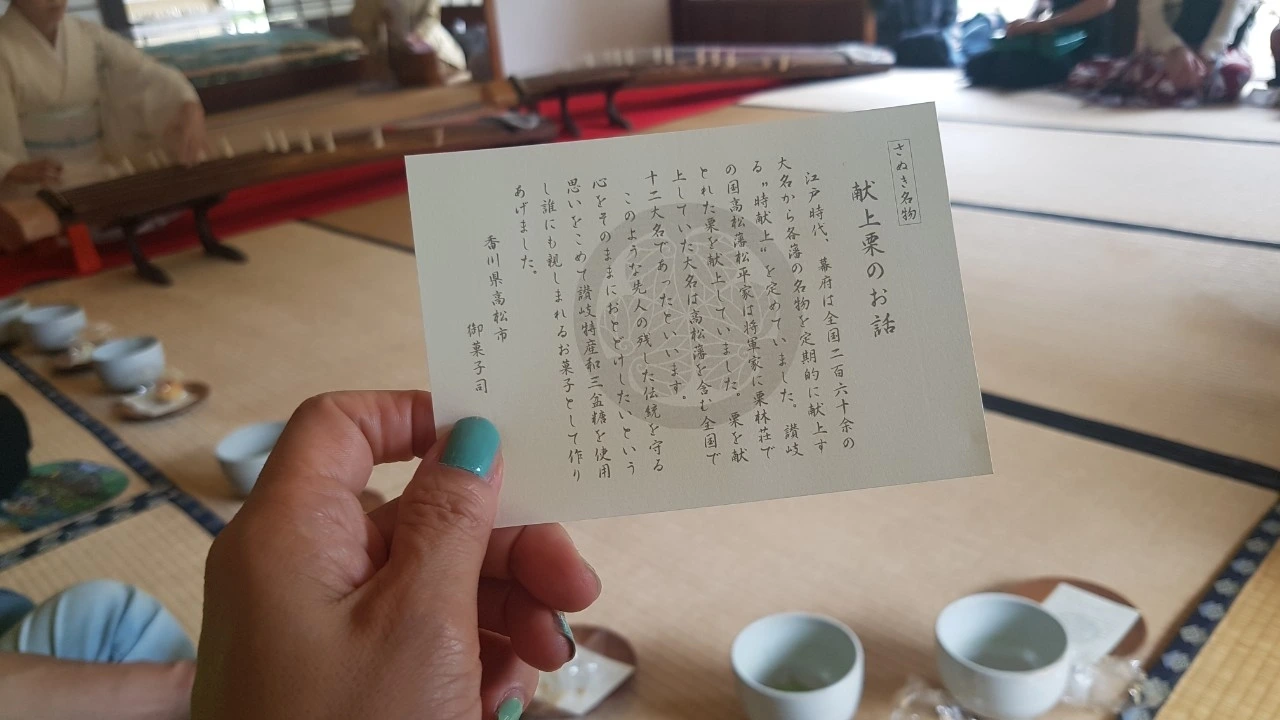 さぬき名物
献上栗のお話
江戸時代、幕府は全国二百六十余の
大名から各藩の名物を定期的に献上す
る〝時献上〟を定めていました。讃岐
の国高松藩松平家は将軍家に栗林荘で
とれた栗を献上していました。栗を献
上していた大名は高松藩を含む全国で
十二大名であったといいます。
このような先人の残した伝統を守る
心をそのままにおとどけしたいという
思いをこめて讃岐特産和三盆糖を使用
し誰にも親しまれるお菓子として作り
あげました。
香川県高松市
御菓子司